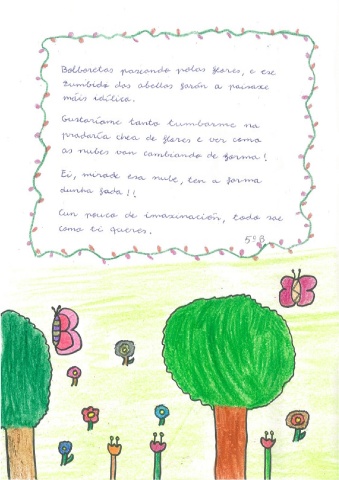 Bolboretas paseando polas flores, e ese
zumbido das abellas farán a paisaxe
máis idílica.
Gustaríame tanto tumbarme na
pradaría chea de flores e ver como
as nubes van cambiando de forma!
Ei, mirade esa nube, ten a forma
dunha fada!!
Cun pouco de imaxinación, todo sae
como ti queres.
5º B